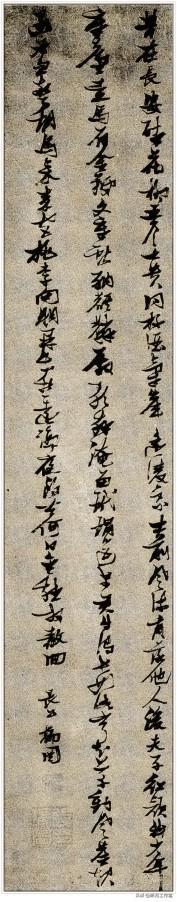 昔在長安醉花柳五侯七貴同杯酒氣岸遙凌豪士前風流肯落他人後夫子紅顏我少年
章臺走馬著金鞭文章獻納麒麟殿歌舞淹留玳瑁筵與君自謂長如此寧知草動風塵起
函谷忽驚胡馬來秦宮桃李向明開我愁遠謫夜郎去何日金雞放赦回